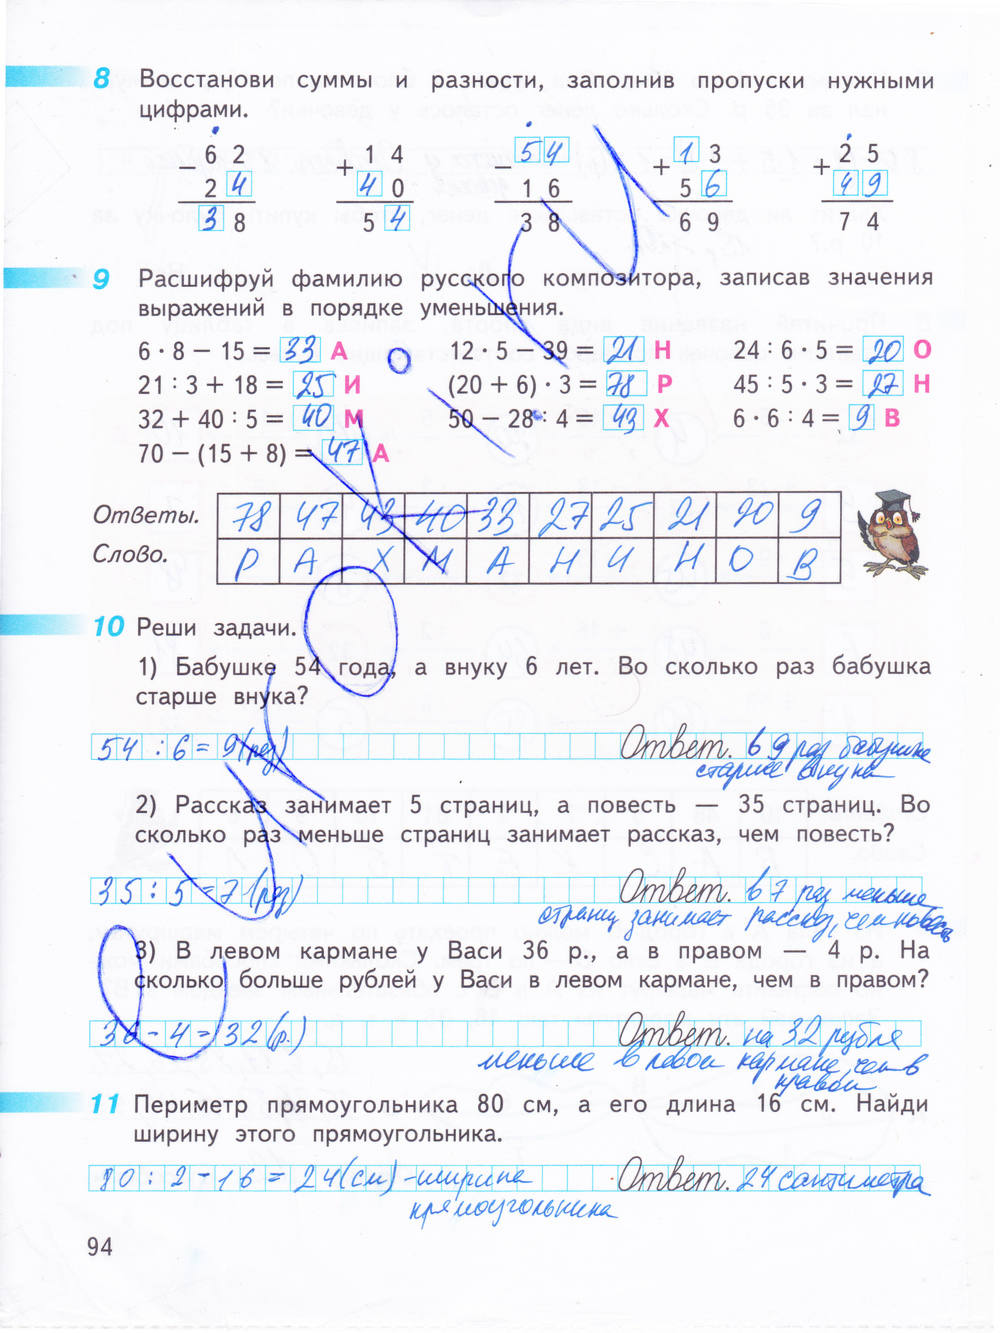 8 Восстанови суммы и разности, заполнив пропуски нужными
цифрами.
− 62 + 14 − 54 + 13 + 25
24 40 16 56 49
38 54 38 69 74
9 Расшифруй фамилию русского композитора, записав значения
выражений в порядке уменьшения.
6 · 8 − 15 = 33 А 12 · 5 − 39 = 21 Н 24 : 6 · 5 = 20 О
21 : 3 + 18 = 25 И (20 + 6) · 3 = 78 Р 45 : 5 · 3 = 27 Н
32 + 40 : 5 = 40 М 50 − 28 : 4 = 43 Х 6 · 6 : 4 = 9 В
70 − (15 + 8) = 47 А
Ответы. 78 47 43 40 33 27 25 21 20 9
Слово. Р А Х М А Н И Н О В
10 Реши задачи.
1) Бабушке 54 года, а внуку 6 лет. Во сколько раз бабушка
старше внука?
54 : 6 = 9 (раз) Ответ. в 9 раз бабушка
старше внука
2) Рассказ занимает 5 страниц, а повесть — 35 страниц. Во
сколько раз меньше страниц занимает рассказ, чем повесть?
35 : 5 = 7 (раз) Ответ. в 7 раз меньше
страниц занимает рассказ, чем повесть
3) В левом кармане у Васи 36 р., а в правом — 4 р. На
сколько больше рублей у Васи в левом кармане, чем в правом?
36 - 4 = 32 (р.) Ответ. на 32 рубля
меньше в левом кармане, чем в
правом
11 Периметр прямоугольника 80 см, а его длина 16 см. Найди
ширину этого прямоугольника.
80 : 2 - 16 = 24 (см) - ширина Ответ. 24 сантиметра
прямоугольника
94